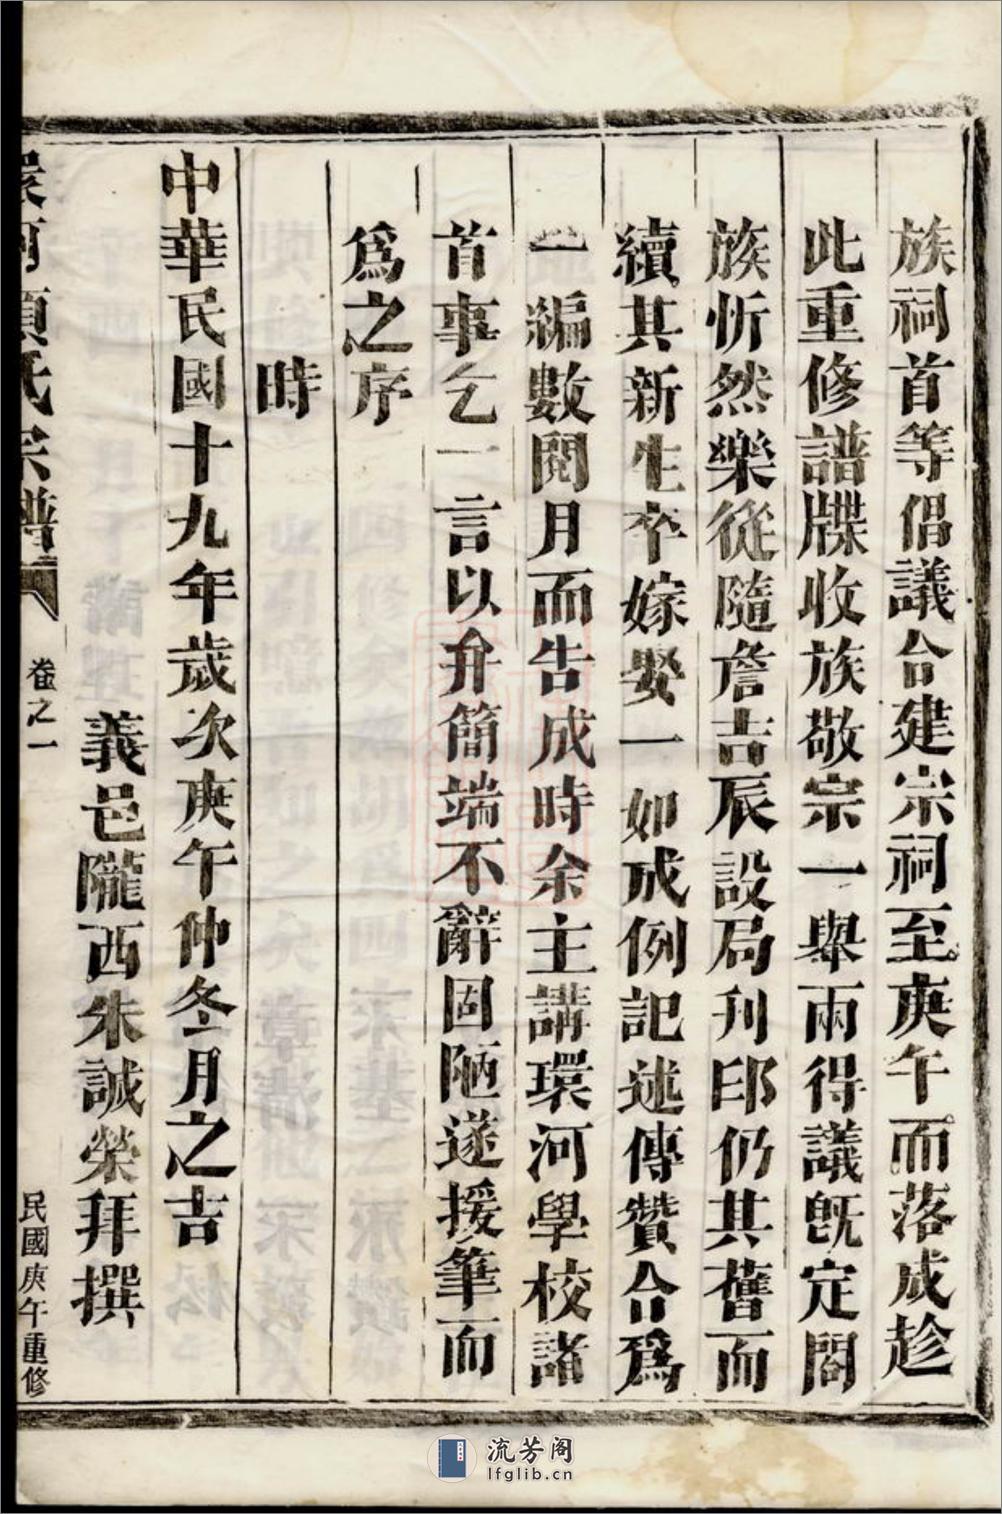 族祠首等倡議合建宗祠至庚午而落成趁
此重修譜牒收族敬宗一舉兩得議既定閤
族忻然樂從隨詹吉辰設局刋印仍其舊而
續其新生卒嫁娶一如成例記述傳贊合爲
一編數閱月而告成時余主講環河學校諸
首事乞一言以弁簡端不辭固陋遂援筆而
爲之序
時
中華民國十九年歲次庚午仲冬月之吉
義邑隴西朱誠榮拜撰
項氏宗譜
卷之一
民國庚午重修
流芳阁
lfglib.cn